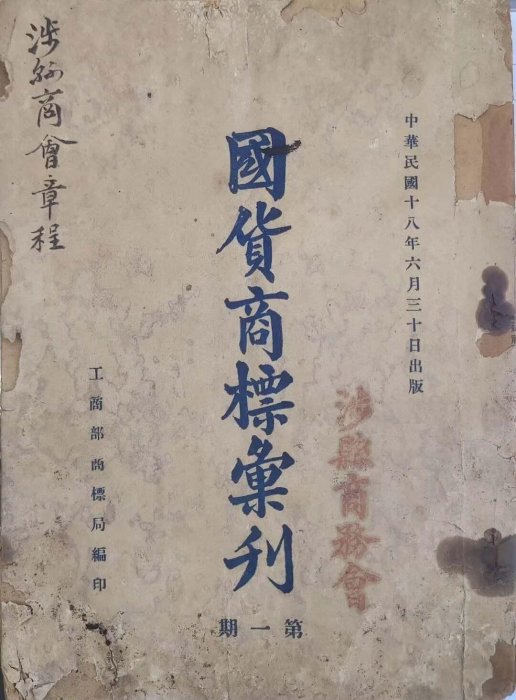 中華民國十八年六月三十日出版
涉縣商務會
國貨商標彙刊
第一期
工商部商標局編印
涉縣商會章程